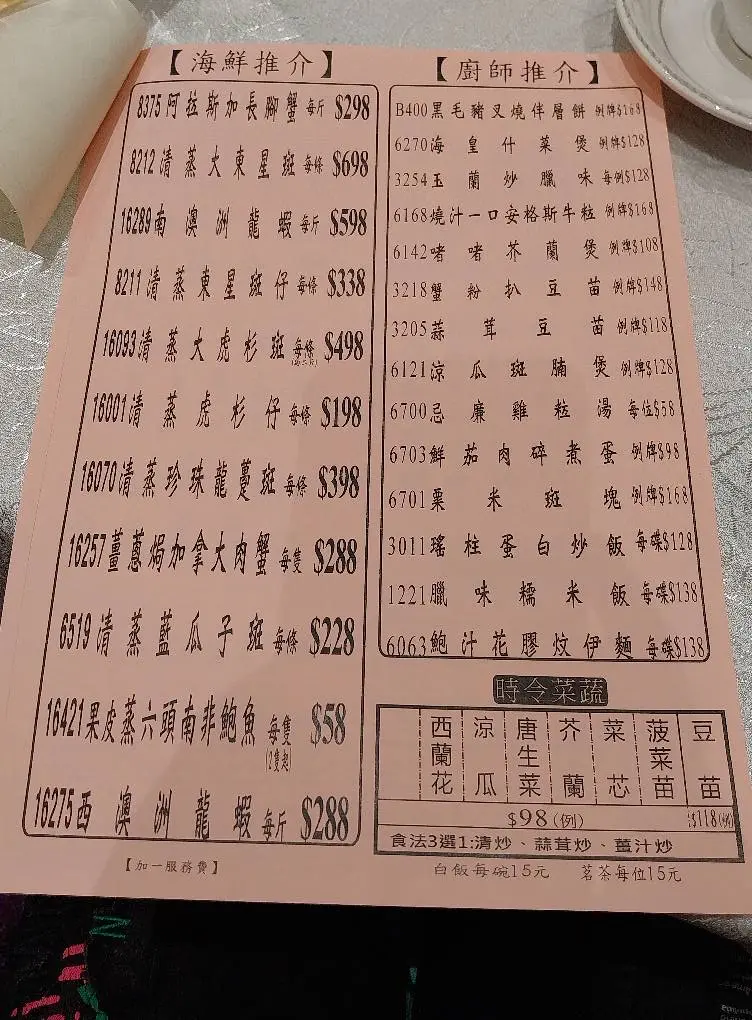 【海鮮推介】
8375 阿拉斯加長腳蟹 每斤 $298
8212 清蒸大東星斑 每條 $698
16289 南澳洲龍蝦 每斤 $598
8211 清蒸東星斑仔 每條 $338
16093 清蒸大虎杉斑 每條 $498
16001 清蒸虎杉仔 每條 $198
16070 清蒸珍珠龍躉斑 每條 $398
16257 薑蔥焗加拿大肉蟹 每隻 $288
6519 清蒸藍瓜子斑 每條 $228
16421 果皮蒸六頭南非鮑魚 每隻 $58
(2隻起)
16275 西澳洲龍蝦 每斤 $288
【加一服務費】
【廚師推介】
B400 黑毛豬叉燒伴層餅 例牌$168
6270 海皇什菜煲 例牌$128
3254 玉蘭炒臘味 每例$128
6168 燒汁一口安格斯牛粒 例牌$168
6142 啫啫芥蘭煲 例牌$108
3218 蟹粉扒豆苗 例牌$148
3205 蒜茸豆苗 例牌$118
6121 涼瓜斑腩煲 例牌$128
6700 忌廉雞粒湯 每位$58
6703 鮮茄肉碎煮蛋 例牌$98
6701 粟米斑塊 例牌$168
3011 瑤柱蛋白炒飯 每碟$128
1221 臘味糯米飯 每碟$138
6063 鮑汁花膠炆伊麵 每碟$138
時令菜蔬
西蘭花 涼瓜 唐生菜 芥蘭 菜芯 菠菜苗 豆苗
$98(例) $118(例)
食法3選1:清炒、蒜茸炒、薑汁炒
白飯每碗15元 茗茶每位15元